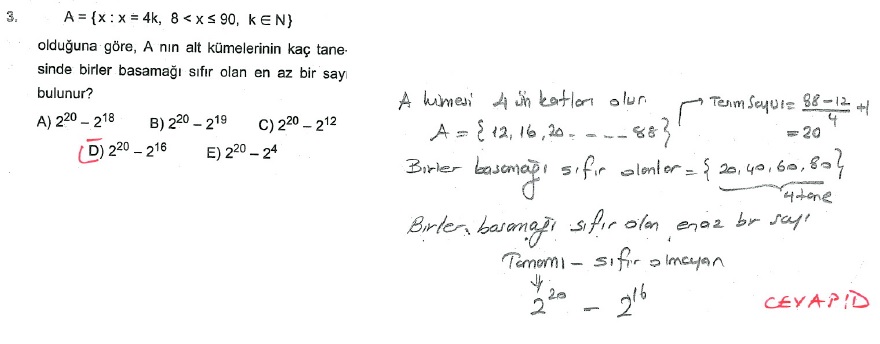 3. A = {x : x = 4k, 8 < x ≤ 90, k ∈ N}
olduğuna göre, A nın alt kümelerinin kaç tane-
sinde birler basamağı sıfır olan en az bir sayı
bulunur?
A) 2²⁰ – 2¹⁸ B) 2²⁰ – 2¹⁹ C) 2²⁰ – 2¹²
D) 2²⁰ – 2¹⁶ E) 2²⁰ – 2⁴
A kümesi 4 ün katları olur.
A = {12, 16, 20 - - - - 88}
Term Sayısı = (88-12)/4 + 1
= 20
Birler basamağı sıfır olanlar = {20, 40, 60, 80}
4 tane
Birler basamağı sıfır olan en az bir sayı
Tamamı – sıfır olmayan
⇓
2²⁰ – 2¹⁶
CEVAP: D